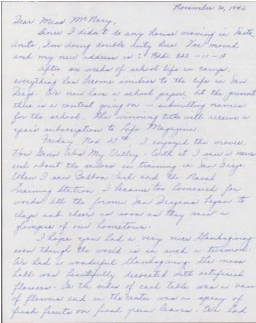 November 30, 1942
Dear Miss
Since I didn't do any house moving in Santa
Anita, I'm doing double duty here. I've moved
and my new address is:
After six weeks of school life in camp,
everything has become similar to the life in San
Diego. We now have a school paper, at the present
there is a contest going on — submitting names
for the school. The winning title will receive a
year's subscription to Life Magazine.
Friday, Nov. 27, I enjoyed the movie,
How Green Was My Valley. With it I saw a news
reel about the sailors training in San Diego.
When I saw Balboa Park and the Naval
Training Station I became too homesick for
words. All the former San Diegans began to
clap and cheer as soon as they saw a
glimpse of our hometown.
I hope you had a very nice Thanksgiving
even though the world is in such a turmoil.
We had a wonderful Thanksgiving. The mess
hall was beautifully decorated with artificial
flowers. On the sides of each table was a vase
of flowers and in the center was a spray of
fresh fruits on fresh green leaves. We had